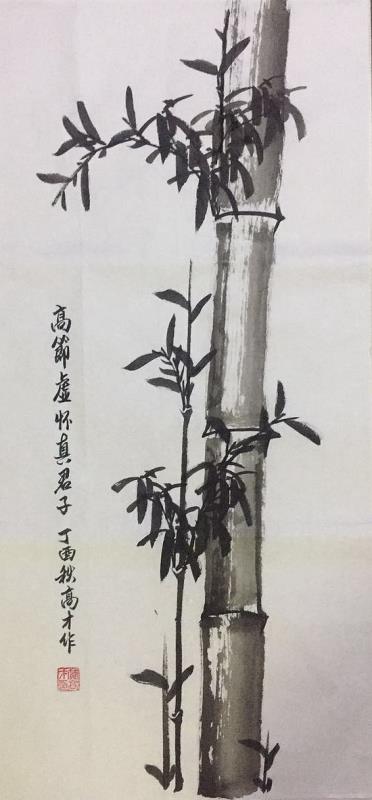 高節虛怀真君子 丁酉秋高才作